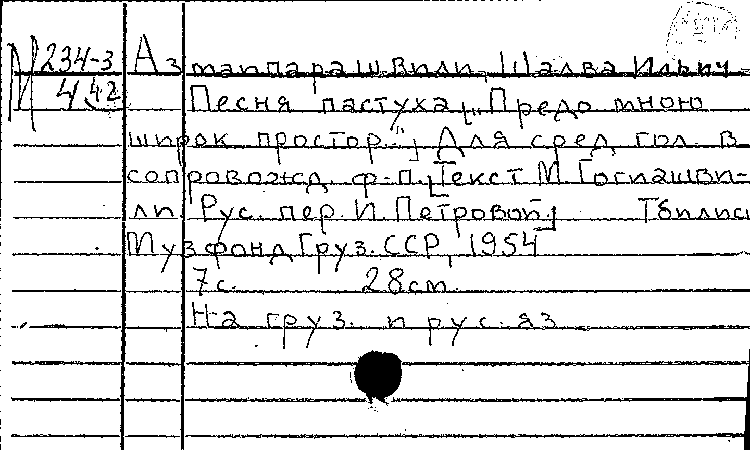 М 234-3
442
Азмаипарашвили, Шалва Ильич -
Песня пастуха [„Предо мною
широк простор..."] Для сред. гол. в
сопровожд. ф-п. [Текст М. Гогиашви-
ли. Рус. пер. И. Петровой] Тбилиси
Музфонд Груз. ССР, 1954
7 с. 28 см.
На груз. и рус. яз